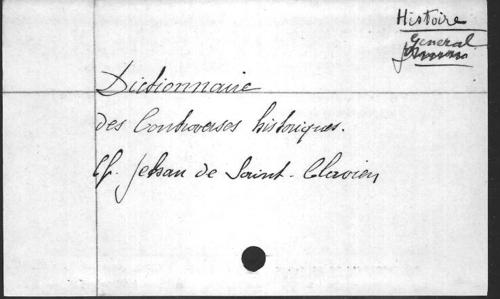 Histoire
General
Dictionnaire
des Controverses historiques.
Cf. Jehan de Saint-Clavien